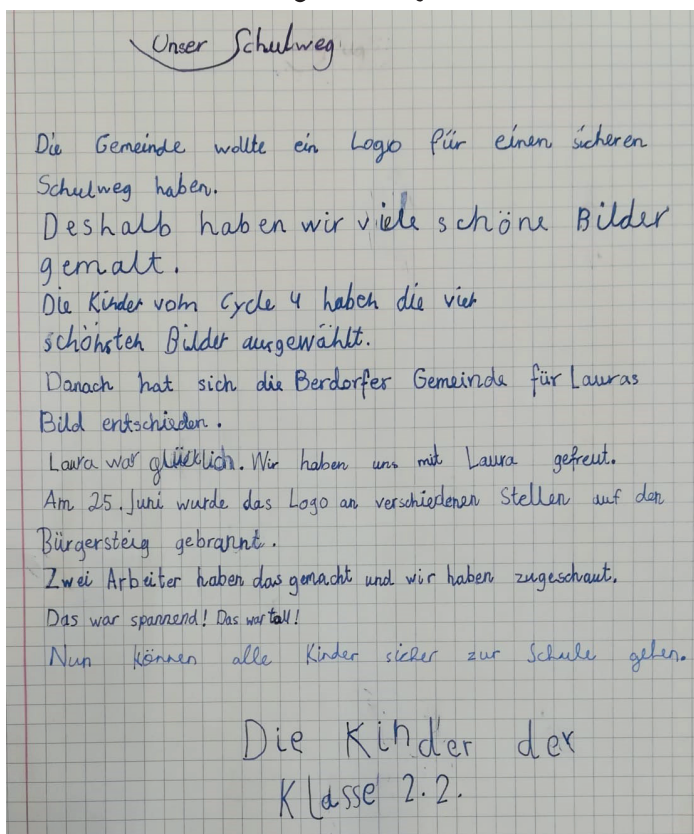 Unser Schulweg
Die Gemeinde wollte ein Logo für einen sicheren
Schulweg haben.
Deshalb haben wir viele schöne Bilder
gemalt.
Die Kinder vom Cycle 4 haben die vier
schönsten Bilder ausgewählt.
Danach hat sich die Berdorfer Gemeinde für Lauras
Bild entschieden.
Laura war glücklich. Wir haben uns mit Laura gefreut.
Am 25. Juni wurde das Logo an verschiedenen Stellen auf den
Bürgersteig gebrannt.
Zwei Arbeiter haben das gemacht und wir haben zugeschaut.
Das war spannend! Das war toll!
Nun können alle Kinder sicher zur Schule gehen.
Die Kinder der
Klasse 2.2.